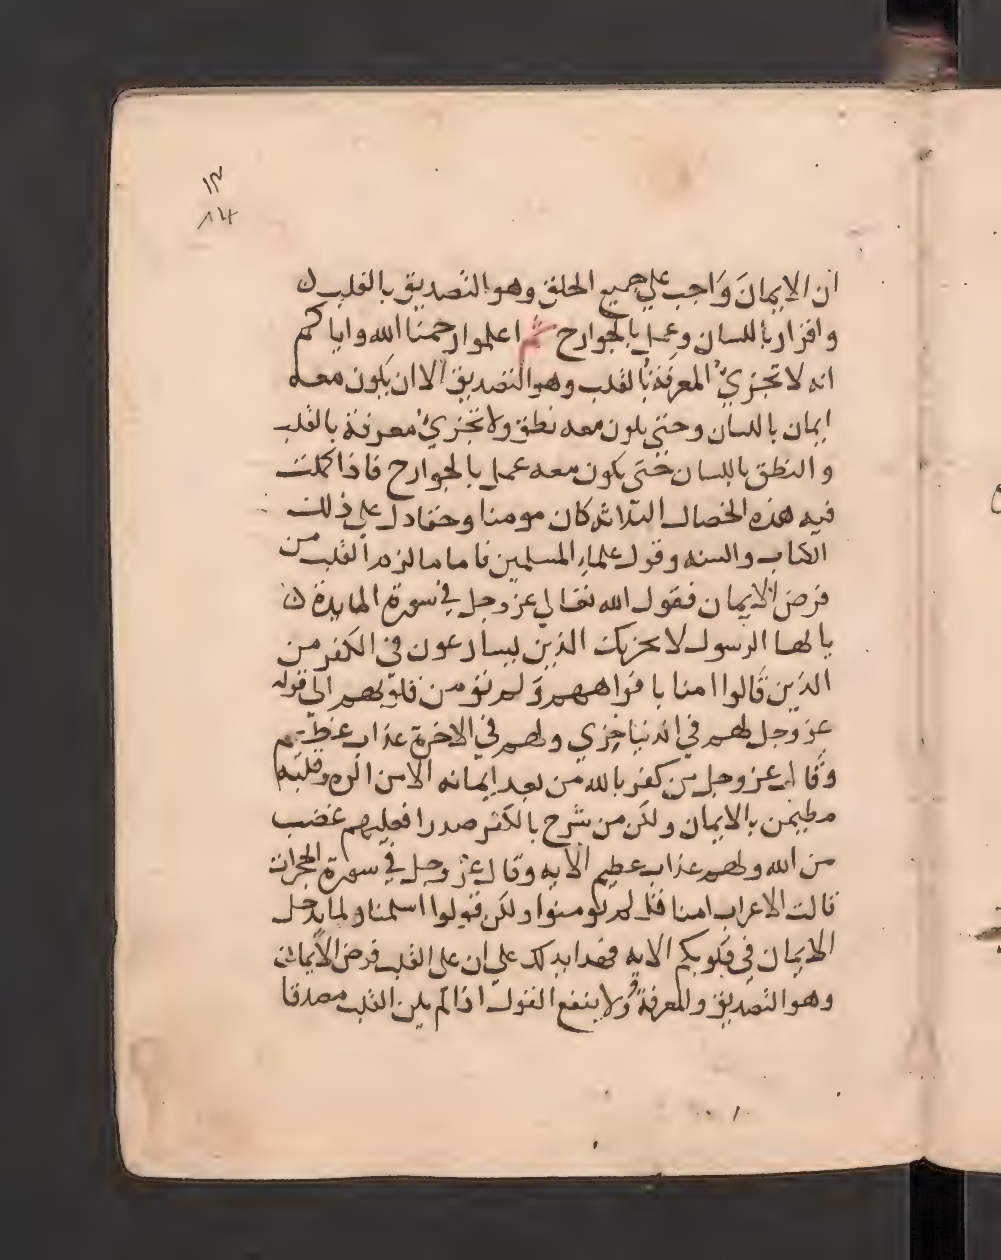 ان الايمان واجب علي جميع الخلق وهو التصديق بالقلب
واقرار باللسان وعمل بالجوارح ثم اعلموا رحمنا الله واياكم
انه لا تجزيء المعرفة بالقلب وهو التصديق الا ان يكون معه
ايمان باللسان وحتي يكون معه نطق ولا تجزيء معرفة بالقلب
والنطق باللسان حتي يكون معه عمل بالجوارح فاذا كملت
فيه هذه الخصال الثلاثه كان مومنا وحقا دل علي ذلك
الكتاب والسنه وقول علماء المسلمين فاما ما لزم القلب من
فرض الايمان فقول الله تعالي عز وجل في سورة المايدة
يا ايها الرسول لا يحزنك الذين يسارعون في الكفر من
الذين قالوا امنا بافواههم ولم تؤمن قلوبهم الي قوله
عز وجل لهم في الدنيا خزي ولهم في الاخرة عذاب عظيم
وقال عز وجل من كفر بالله من بعد ايمانه الا من اكره وقلبه
مطمئن بالايمان ولكن من شرح بالكفر صدرا فعليهم غضب
من الله ولهم عذاب عظيم الايه وقال عز وجل في سورة الحجرات
قالت الاعراب امنا قل لم تومنوا ولكن قولوا اسلمنا ولما يدخل
الايمان في قلوبكم الايه فهذا يدلك علي ان علي القلب فرض الايمان
وهو التصديق والمعرفة ولا ينفع القول اذا لم يكن القلب مصدقا